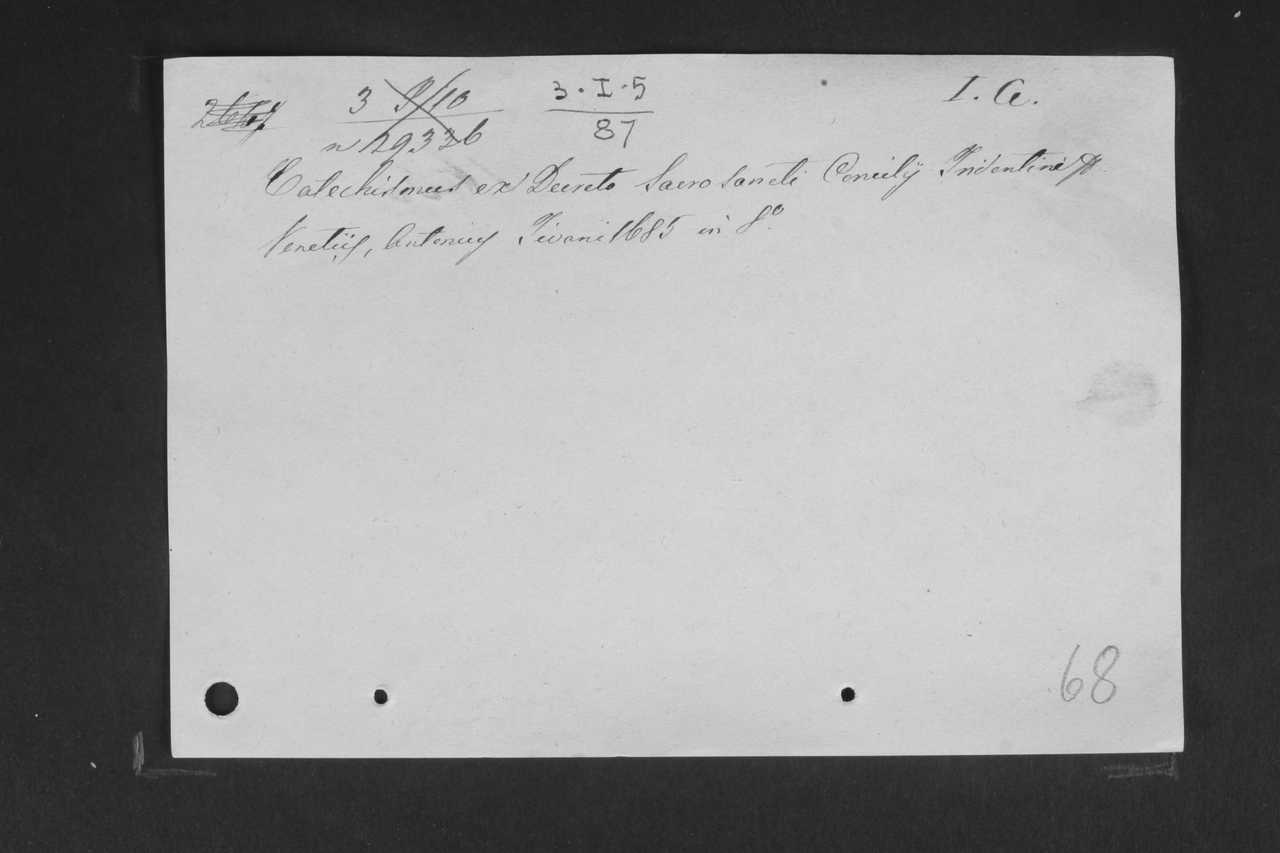 3 9/10 3·I·5 I. A.
n 29336 87
Catechismus ex Decreto Sacrosancti Concilÿ Tridentini
Venetÿs, Antonius Tivani 1685 in 8º
68